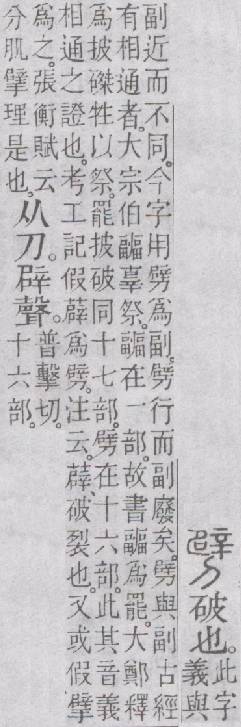 劈破也。此字
義與
副近而不同。今字用劈爲副。劈行而副廢矣。劈與副古經
有相通者。大宗伯疈辜祭。疈在一部。故書疈爲罷。大鄭釋
爲披磔牲以祭。罷披破同十七部。劈在十六部。此其音義
相通之證也。考工記假薜爲劈。注云。薜、破裂也。又或假擘
爲之。張衡賦云。
分肌擘理是也。
从刀。辟聲。
普擊切。
十六部。